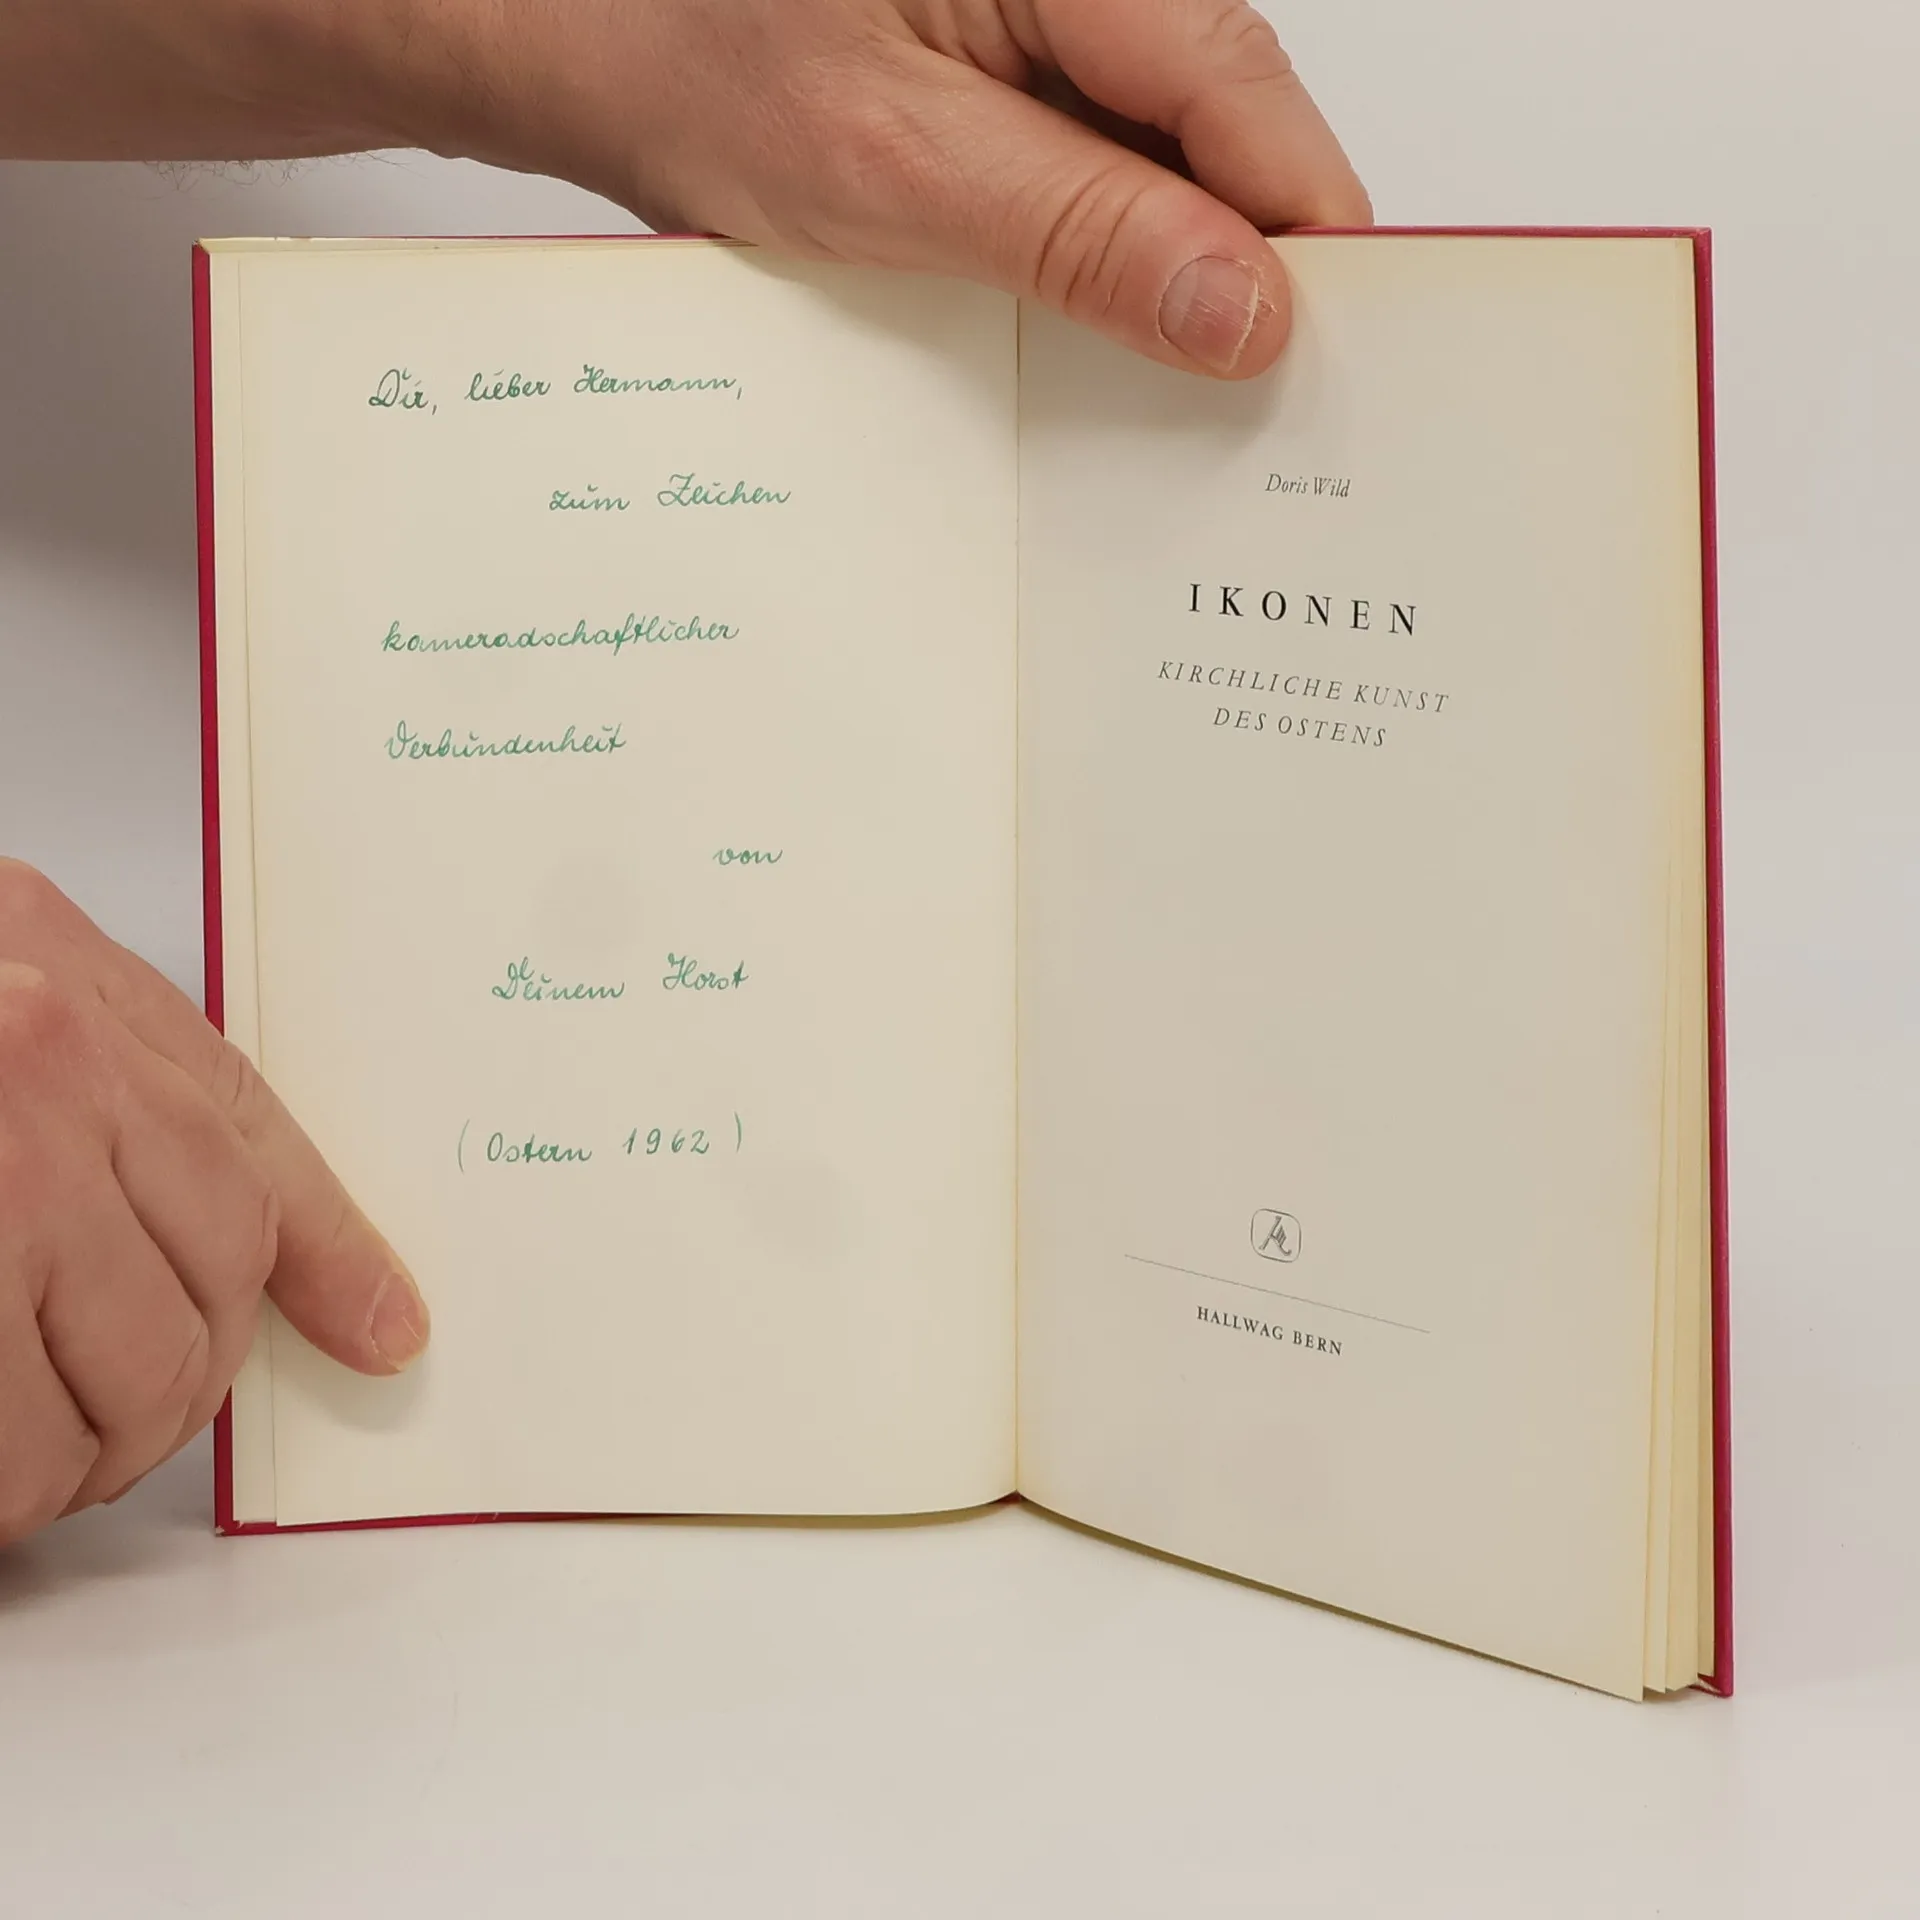 Dir, lieber Hermann,
zum Zeichen
kameradschaftlicher
Verbundenheit
von
Deinem Horst
(Ostern 1962)
Doris Wild
IKONEN
KIRCHLICHE KUNST
DES OSTENS
HALLWAG BERN